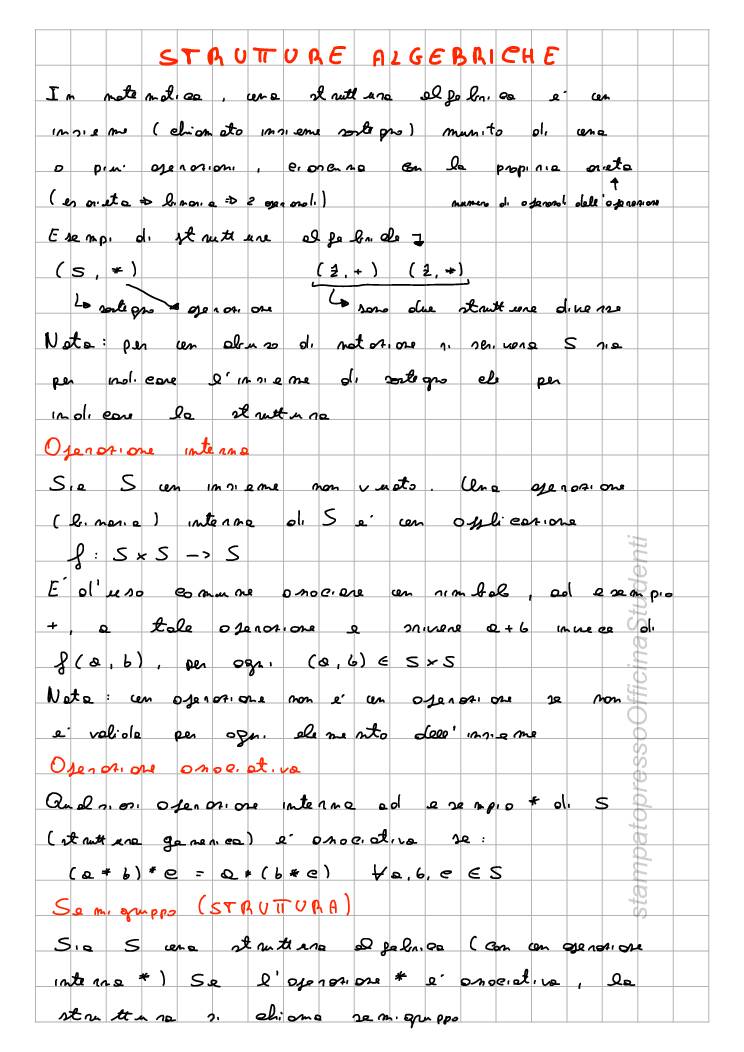 STRUTTURE ALGEBRICHE
In matematica, una struttura algebrica e' un
insieme (chiamato insieme sostegno) munito di una
o piu' operazioni, ciascuna con la propria arieta
(es arieta => binaria => 2 operandi)
numero di operandi dell'operazione
Esempi di strutture algebriche
(S, *) (Z, +) (Z, *)
sostegno operazione sono due strutture diverse
Nota: per un abuso di notazione si scrivera S sia
per indicare l'insieme di sostegno che per
indicare la struttura
Operazione interna
Sia S un insieme non vuoto. Una operazione
(binaria) interna di S e' un applicazione
f: S x S -> S
E' d'uso comune associare un simbolo, ad esempio
+, a tale operazione e scrivere a+b invece di
f(a, b), per ogni (a, b) ∈ S x S
Nota: un operazione non e' un operazione se non
e' valida per ogni elemento dell'insieme
Operazione associativa
Qualsiasi operazione interna ad esempio * di S
(struttura generica) e' associativa se:
(a * b) * c = a * (b * c) ∀a, b, c ∈ S
Semigruppo (STRUTTURA)
Sia S una struttura algebrica (con un operazione
interna *) Se l'operazione * e' associativa, la
struttura si chiama semigruppo
stampatopressoOfficinaStudenti